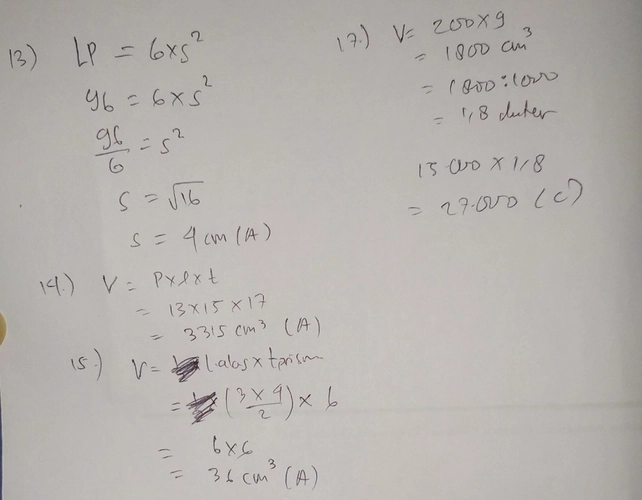 13) LP = 6xs²
96 = 6xs²
96/6 = s²
s = √16
s = 4 cm (A)
14.) V = pxlxt
= 13x15x17
= 3315 cm³ (A)
15.) V = l.alas x t prism
= (3x4/2) x 6
= 6x6
= 36 cm³ (A)
17.) V = 200x9
= 1800 cm³
= 1800:1000
= 1,8 liter
15.000 x 1,8
= 27.000 (C)